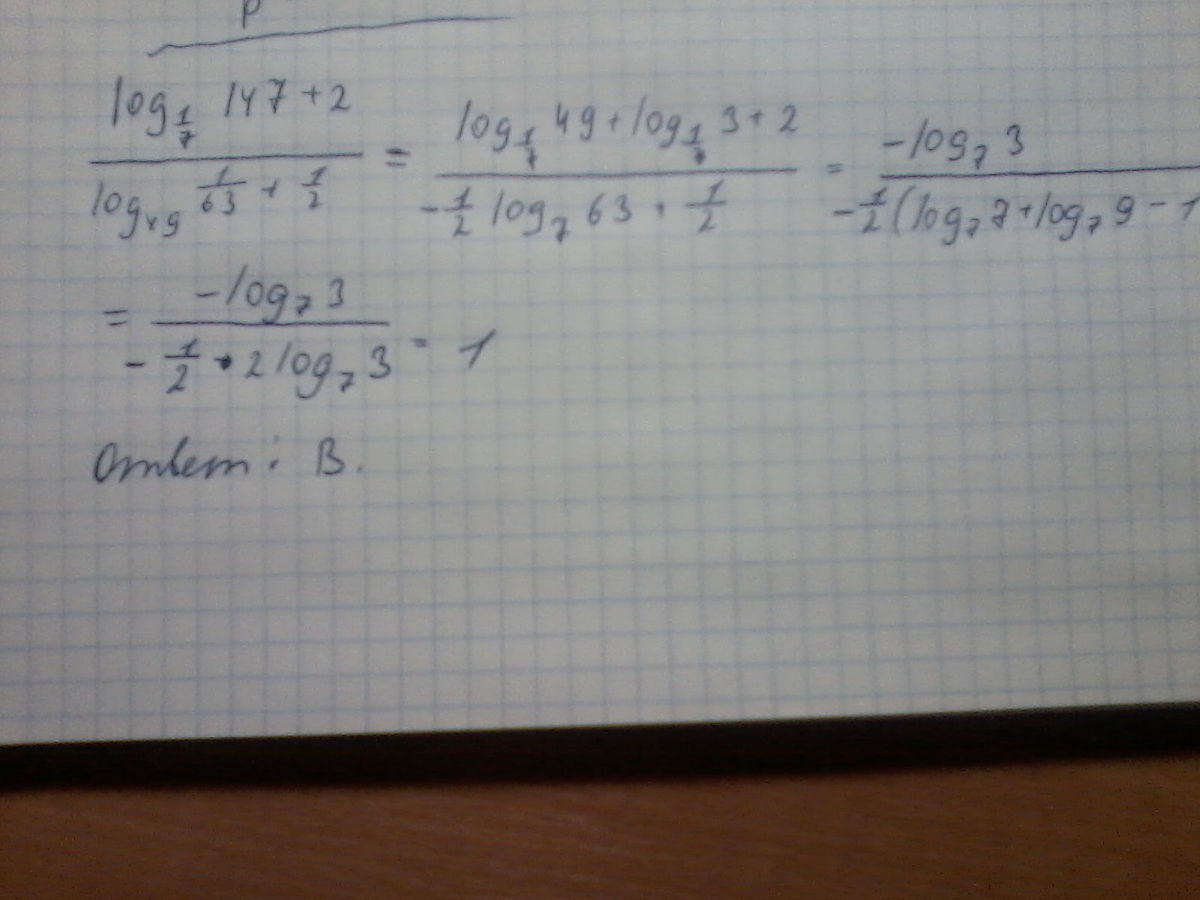 р
(log_{1/7} 147 + 2) / (log_{49} 1/63 + 1/2) = (log_{1/7} 49 + log_{1/7} 3 + 2) / (-1/2 log_7 63 + 1/2) = (-log_7 3) / (-1/2 (log_7 7 + log_7 9 - 1
= (-log_7 3) / (-1/2 • 2 log_7 3) = 1
Ответ: В.